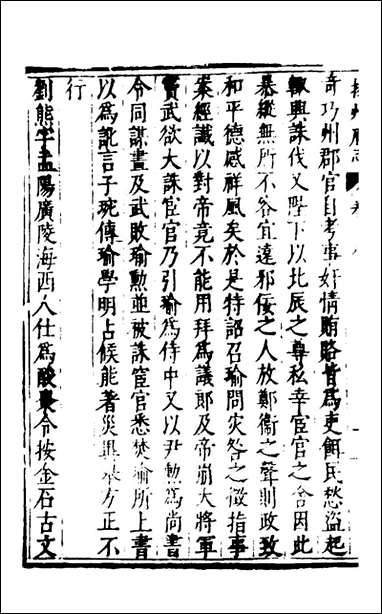 揚州府志 卷
奇巧州郡官自考事奸情賄賂皆爲吏餌民愁盜起
輒興誅伐又陛下以北辰之尊私幸宦官之舍因此
暴縱無所不容宜遠邪佞之人放鄭衞之聲則政致
和平德感祥風矣於是特詔召瑜問災咎之徵指事
案經讖以對帝竟不能用拜爲議郎及帝崩大將軍
竇武欲大誅宦官乃引瑜爲侍中又以尹勳爲尚書
令同謀畫及武敗瑜勳並被誅宦官悉焚瑜所上書
以爲訛言子琬傳瑜學明占候能著災異舉方正不
行
劉熊字孟陽廣陵海西人仕爲酸棗令按金石古文